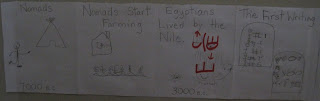 Nomads
7000 BC
Nomads Start
Farming
Egyptians
Lived by the
Nile.
3000 BC
The First Writing